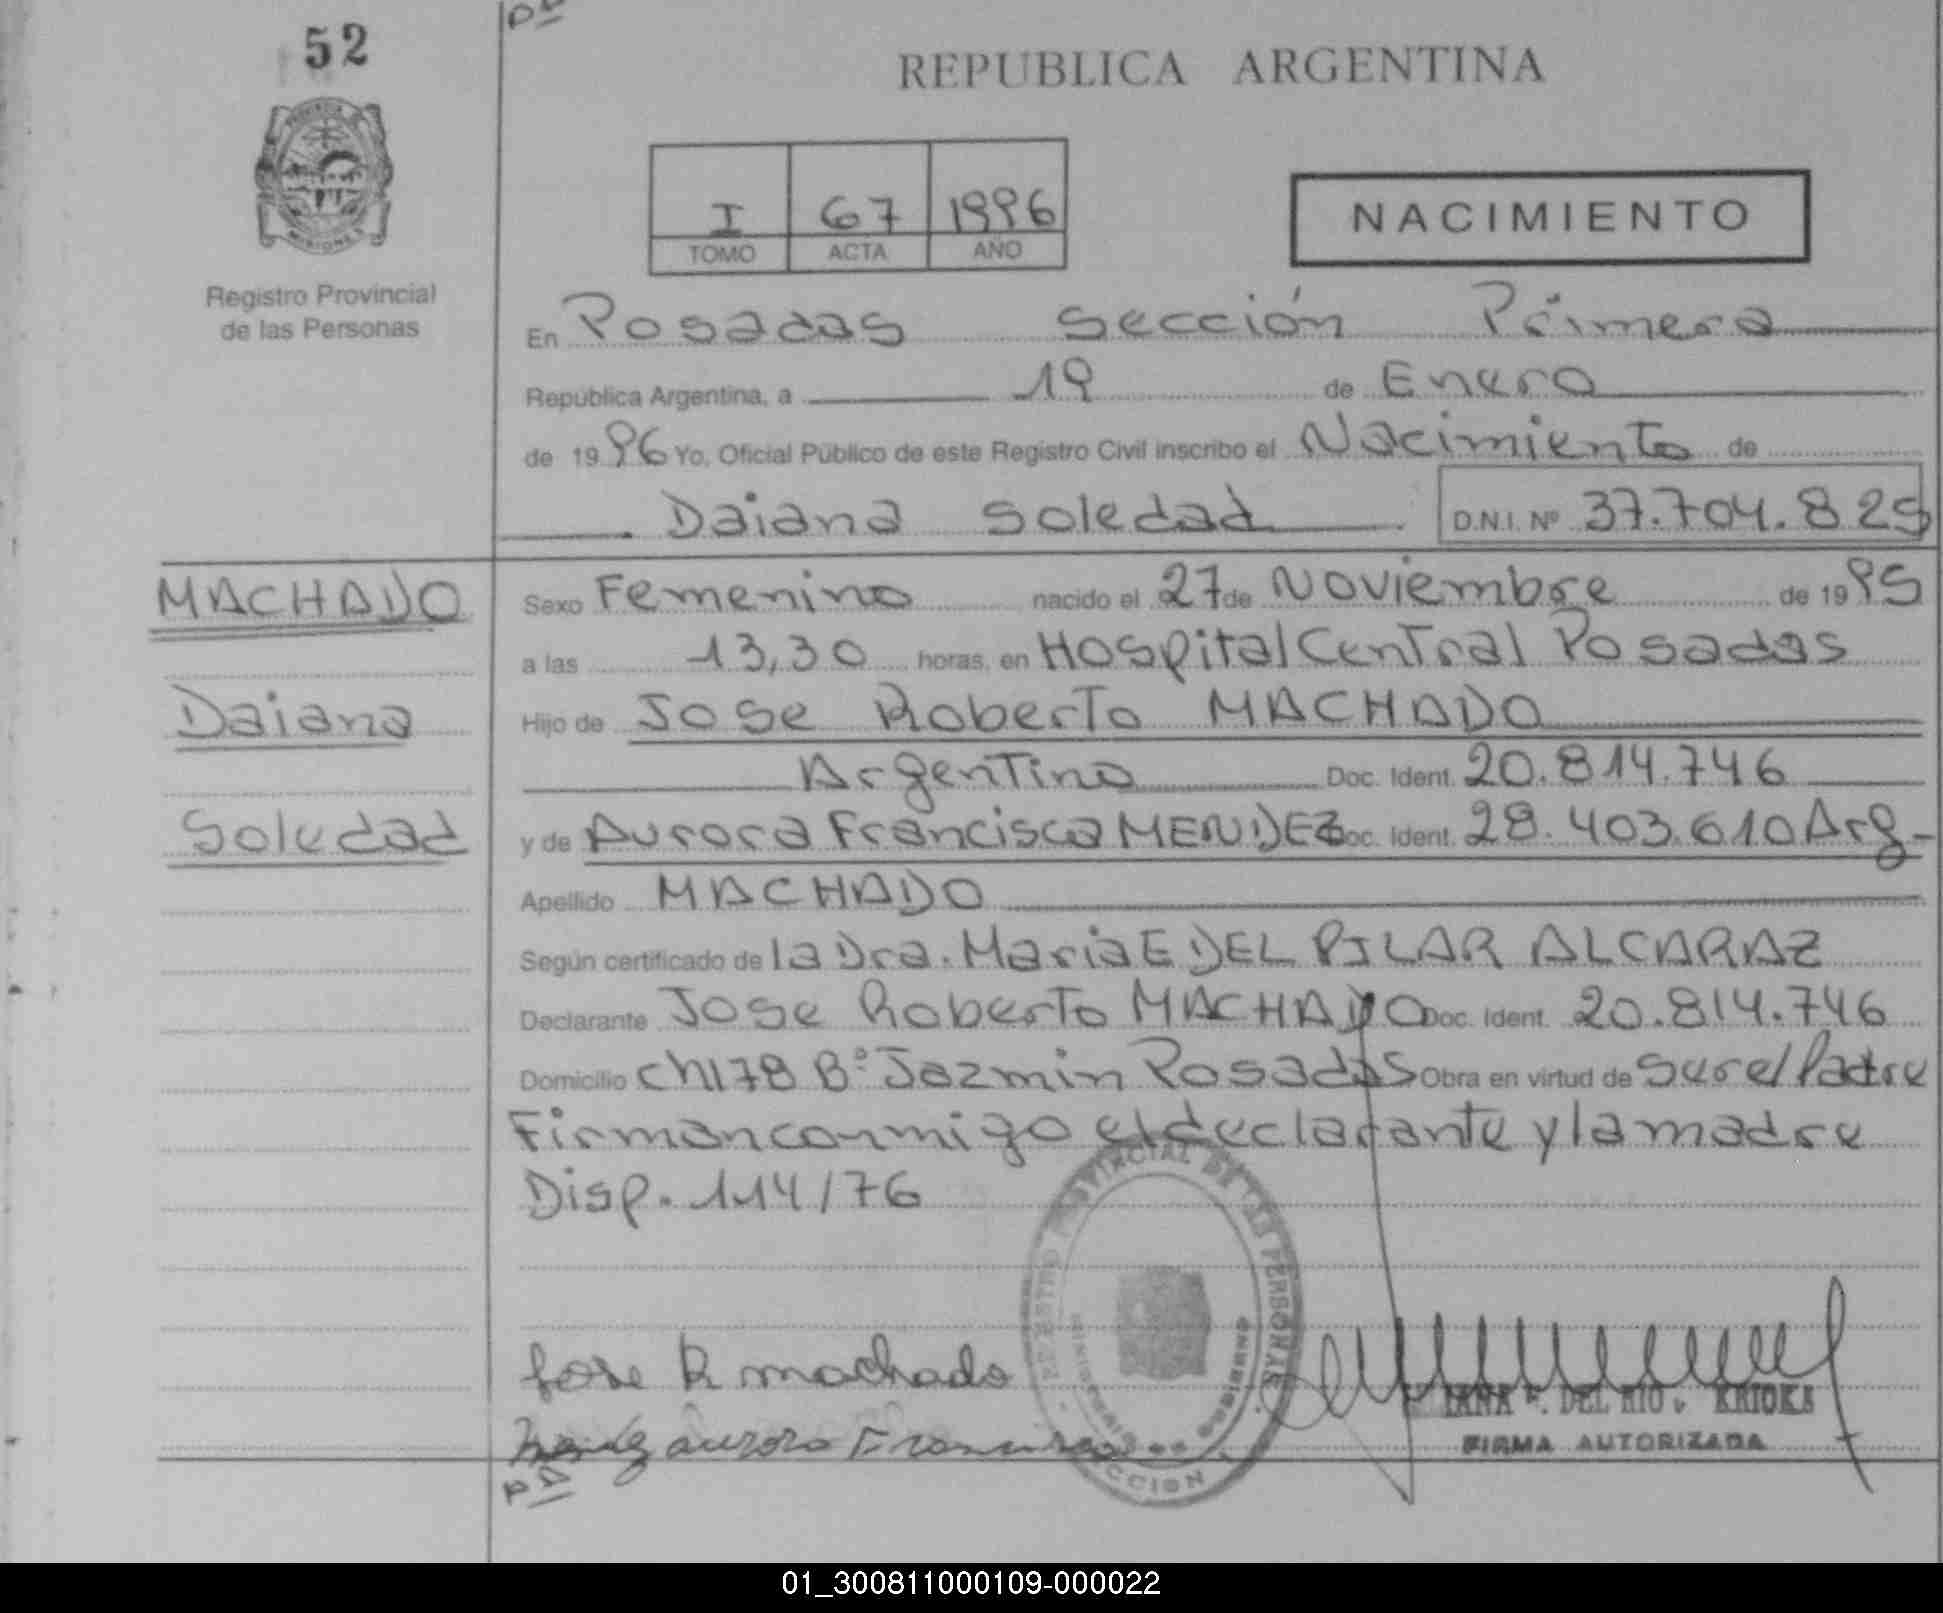 52
REPUBLICA ARGENTINA
PROVINCIA DE MISIONES
Registro Provincial
de las Personas
I 67 1996
TOMO ACTA AÑO
NACIMIENTO
En Posadas Sección Primera
República Argentina, a 19 de Enero
de 1996 Yo, Oficial Público de este Registro Civil inscribo el Nacimiento de
Daiana Soledad D.N.I. Nº 37.704.825
MACHADO
Daiana
Soledad
Sexo Femenino nacido el 27 de Noviembre de 1995
a las 13,30 horas, en Hospital Central Posadas
Hijo de Jose Roberto MACHADO
Argentino Doc. Ident. 20.814.746
y de Aurora Francisca MENDEZ Doc. Ident. 28.403.610 Arg-
Apellido MACHADO
Según certificado de la Dra. Maria E DEL PILAR ALCARAZ
Declarante Jose Roberto MACHADO Doc. Ident. 20.814.746
Domicilio Ch178 Bº Jazmin Posadas Obra en virtud de ser el Padre
Firman conmigo el declarante y la madre
Disp. 114/76
REGISTRO PROVINCIAL DE LAS PERSONAS
Jose R machado
aurora Francisca
DEL RIO
FIRMA AUTORIZADA
01_300811000109-000022